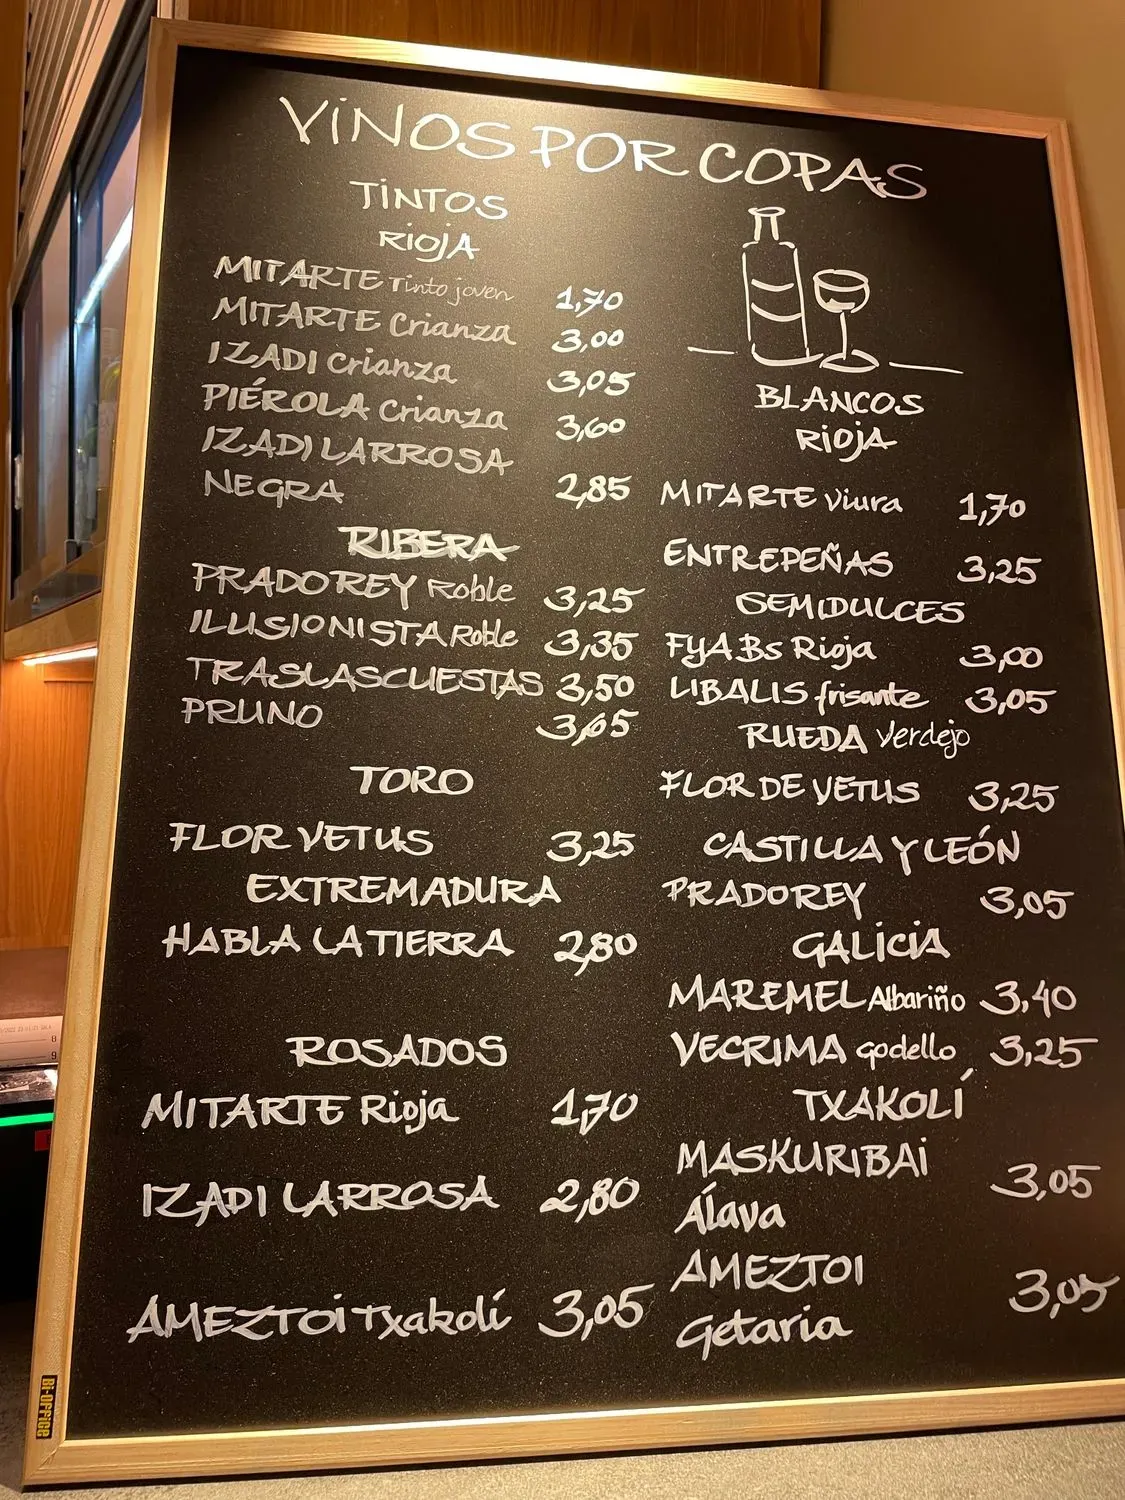 VINOS POR COPAS
TINTOS
RIOJA
MITARTE Tinto joven 1,70
MITARTE Crianza 3,00
IZADI Crianza 3,05
PIÉROLA Crianza 3,60
IZADI LARROSA
NEGRA 2,85
RIBERA
PRADOREY Roble 3,25
ILUSIONISTA Roble 3,35
TRASLASCUESTAS 3,50
PRUNO 3,65
TORO
FLOR VETUS 3,25
EXTREMADURA
HABLA LA TIERRA 2,80
ROSADOS
MITARTE Rioja 1,70
IZADI LARROSA 2,80
AMEZTOI Txakolí 3,05
BLANCOS
RIOJA
MITARTE Viura 1,70
ENTREPEÑAS 3,25
SEMIDULCES
FYA Bs Rioja 3,00
LIBALIS frisante 3,05
RUEDA Verdejo
FLOR DE VETUS 3,25
CASTILLA Y LEÓN
PRADOREY 3,05
GALICIA
MAREMEL Albariño 3,40
VECRIMA godello 3,25
TXAKOLÍ
MASKURIBAI
Álava 3,05
AMEZTOI
Getaria 3,05
Bi-OFFiCE